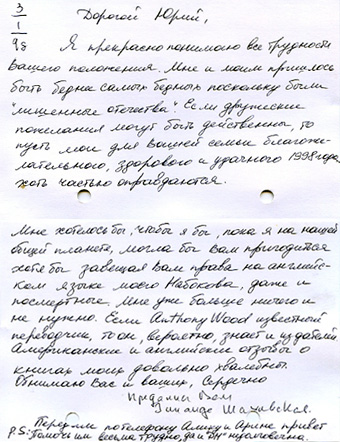 3
1
98
Дорогой Юрий,
Я прекрасно понимаю все трудности
вашего положения. Мне и моим пришлось
быть бедна самых бедных поскольку были
"лишенные отечества". Если дружеские
пожелания могут быть действенны, то
пусть мои для вашей семьи благоже-
лательного, здорового и удачного 1998 года
хоть частью оправдаются.
Мне хотелось бы, чтобы я бы, пока я на нашей
общей планете, могла бы Вам пригодиться
хотя бы завещая Вам права на английс-
ком языке моего Набокова, даже и
посмертные. Мне уже больше ничего и
не нужно. Если Anthony Wood известный
переводчик, то он, вероятно, знает и издателей
Американские и английские отзывы о
книгах моих довольно хвалебны.
Обнимаю Вас и ваших, Сердечно
преданная Вам
Зинаида Шаховская.
P.S: Передали по телефону Алику и Арине привет
Помочь им весьма трудно, да и он